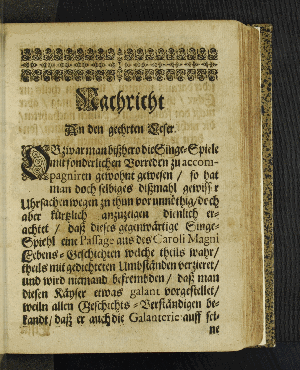 Nachricht
An den geehrten Leser.
OBzwar man bißhero die Singe-Spiele
mit sonderlichen Vorreden zu accom-
pagniren gewohnt gewesen / so hat
man doch selbiges dißmahl gewisser
Uhrsachen wegen zu thun vor unnöthig / doch
aber kürtzlich anzuzeigen dienlich er-
achtet / daß dieses gegenwärtige Singe-
Spiehl eine Passage aus des Caroli Magni
Lebens-Geschichten welche theils wahr /
theils mit gedichteten Umbständen verzieret /
und wird niemand befrembden / daß man
diesen Käyser etwas galant vorgestellet /
weiln allen Geschichts-Verständigen be-
kandt / daß er auch die Galanterie auff sei-
ne